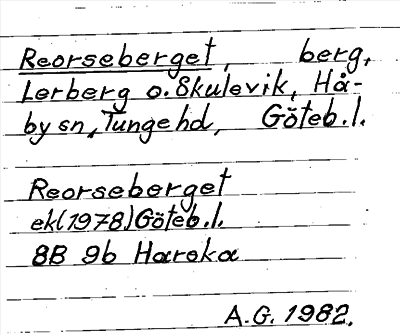 Reorseberget, berg,
Lerberg o. Skulevik, Hå-
by sn, Tunge hd, Göteb. l.
Reorseberget
ekl(1978)Göteb. l.
8B 9b Haroka
A.G. 1982.